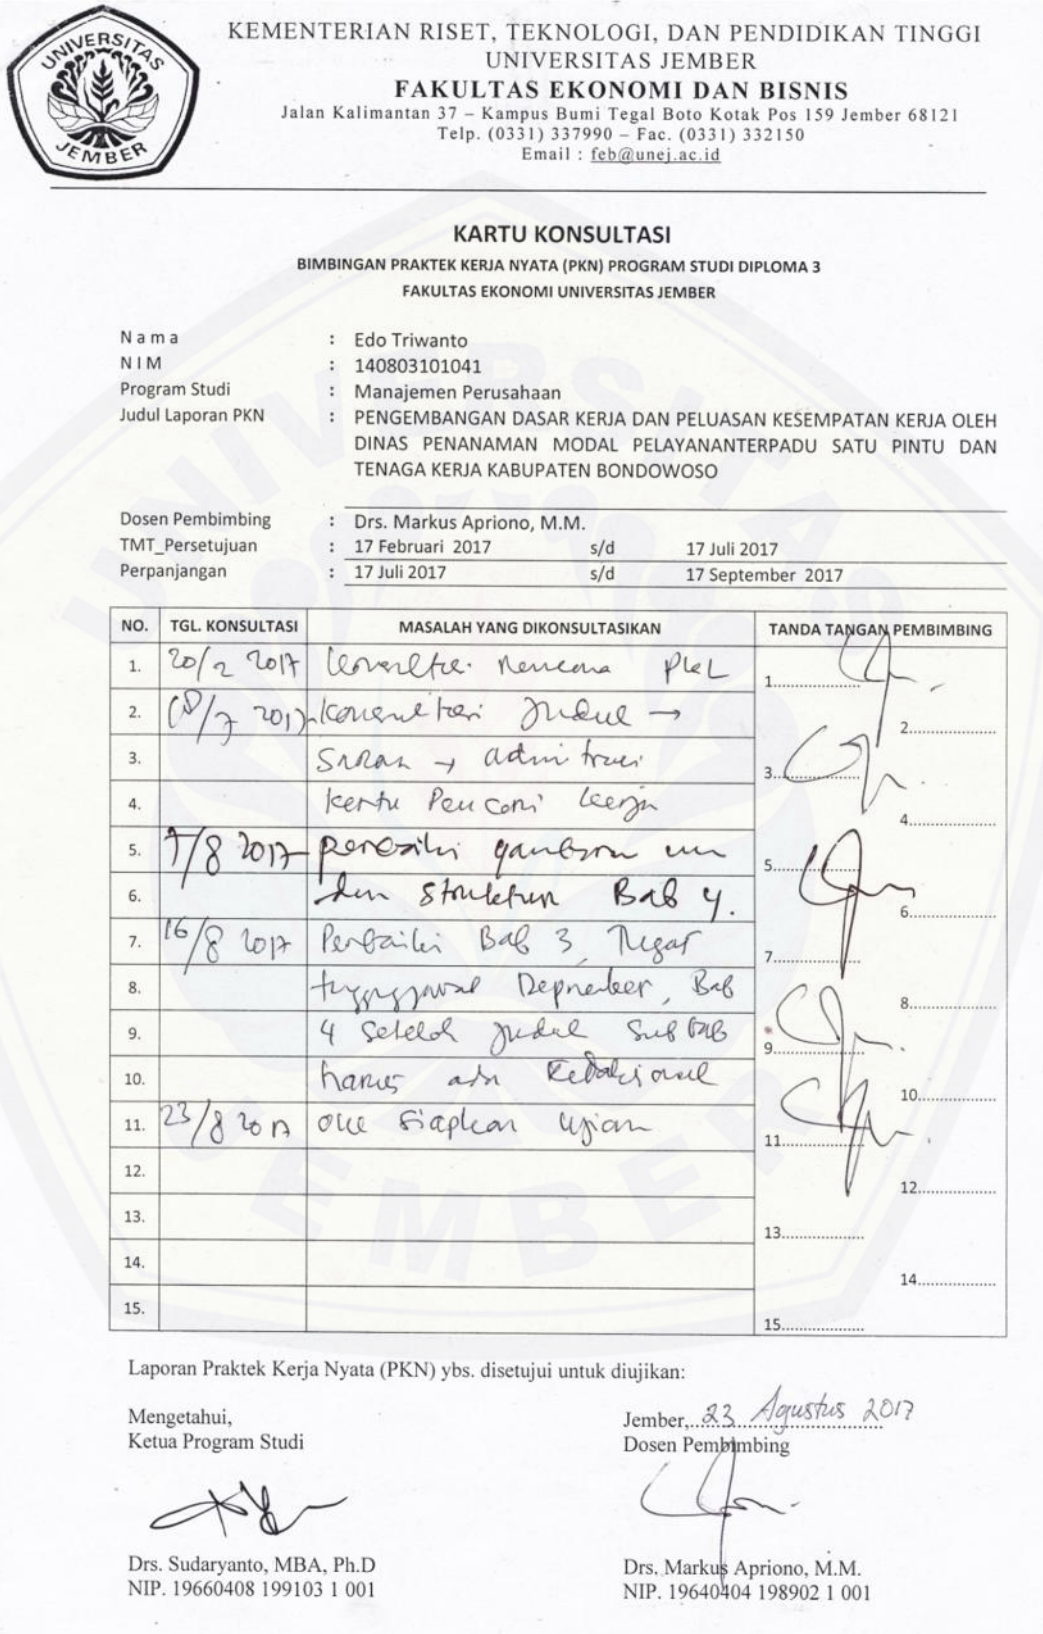 UNIVERSITAS
JEMBER
KEMENTERIAN RISET, TEKNOLOGI, DAN PENDIDIKAN TINGGI
UNIVERSITAS JEMBER
FAKULTAS EKONOMI DAN BISNIS
Jalan Kalimantan 37 – Kampus Bumi Tegal Boto Kotak Pos 159 Jember 68121
Telp. (0331) 337990 – Fac. (0331) 332150
Email : feb@unej.ac.id
KARTU KONSULTASI
BIMBINGAN PRAKTEK KERJA NYATA (PKN) PROGRAM STUDI DIPLOMA 3
FAKULTAS EKONOMI UNIVERSITAS JEMBER
N a m a : Edo Triwanto
N I M : 140803101041
Program Studi : Manajemen Perusahaan
Judul Laporan PKN : PENGEMBANGAN DASAR KERJA DAN PELUASAN KESEMPATAN KERJA OLEH
DINAS PENANAMAN MODAL PELAYANANTERPADU SATU PINTU DAN
TENAGA KERJA KABUPATEN BONDOWOSO
Dosen Pembimbing : Drs. Markus Apriono, M.M.
TMT_Persetujuan : 17 Februari 2017 s/d 17 Juli 2017
Perpanjangan : 17 Juli 2017 s/d 17 September 2017
NO. TGL. KONSULTASI MASALAH YANG DIKONSULTASIKAN TANDA TANGAN PEMBIMBING
1. 20/2 2017 Konsultasi Rencana PKL 1....................
2. /7 2017 Konsultasi Judul → 2....................
3. Saran → 3....................
4. Kartu Pencari Kerja 4....................
5. 7/8 2017 perbaiki gambaran um 5....................
6. dan struktur Bab 4. 6....................
7. 16/8 2017 Perbaiki Bab 3, Tugas 7....................
8. Bab 8....................
9. 4 setelah judul sub bab 9....................
10. harus ada Redaksional 10....................
11. 23/8 2017 oke siapkan ujian 11....................
12. 12....................
13. 13....................
14. 14....................
15. 15....................
Laporan Praktek Kerja Nyata (PKN) ybs. disetujui untuk diujikan:
Mengetahui,
Ketua Program Studi
Jember, 23 Agustus 2017
Dosen Pembimbing
Drs. Sudaryanto, MBA, Ph.D
NIP. 19660408 199103 1 001
Drs. Markus Apriono, M.M.
NIP. 19640404 198902 1 001